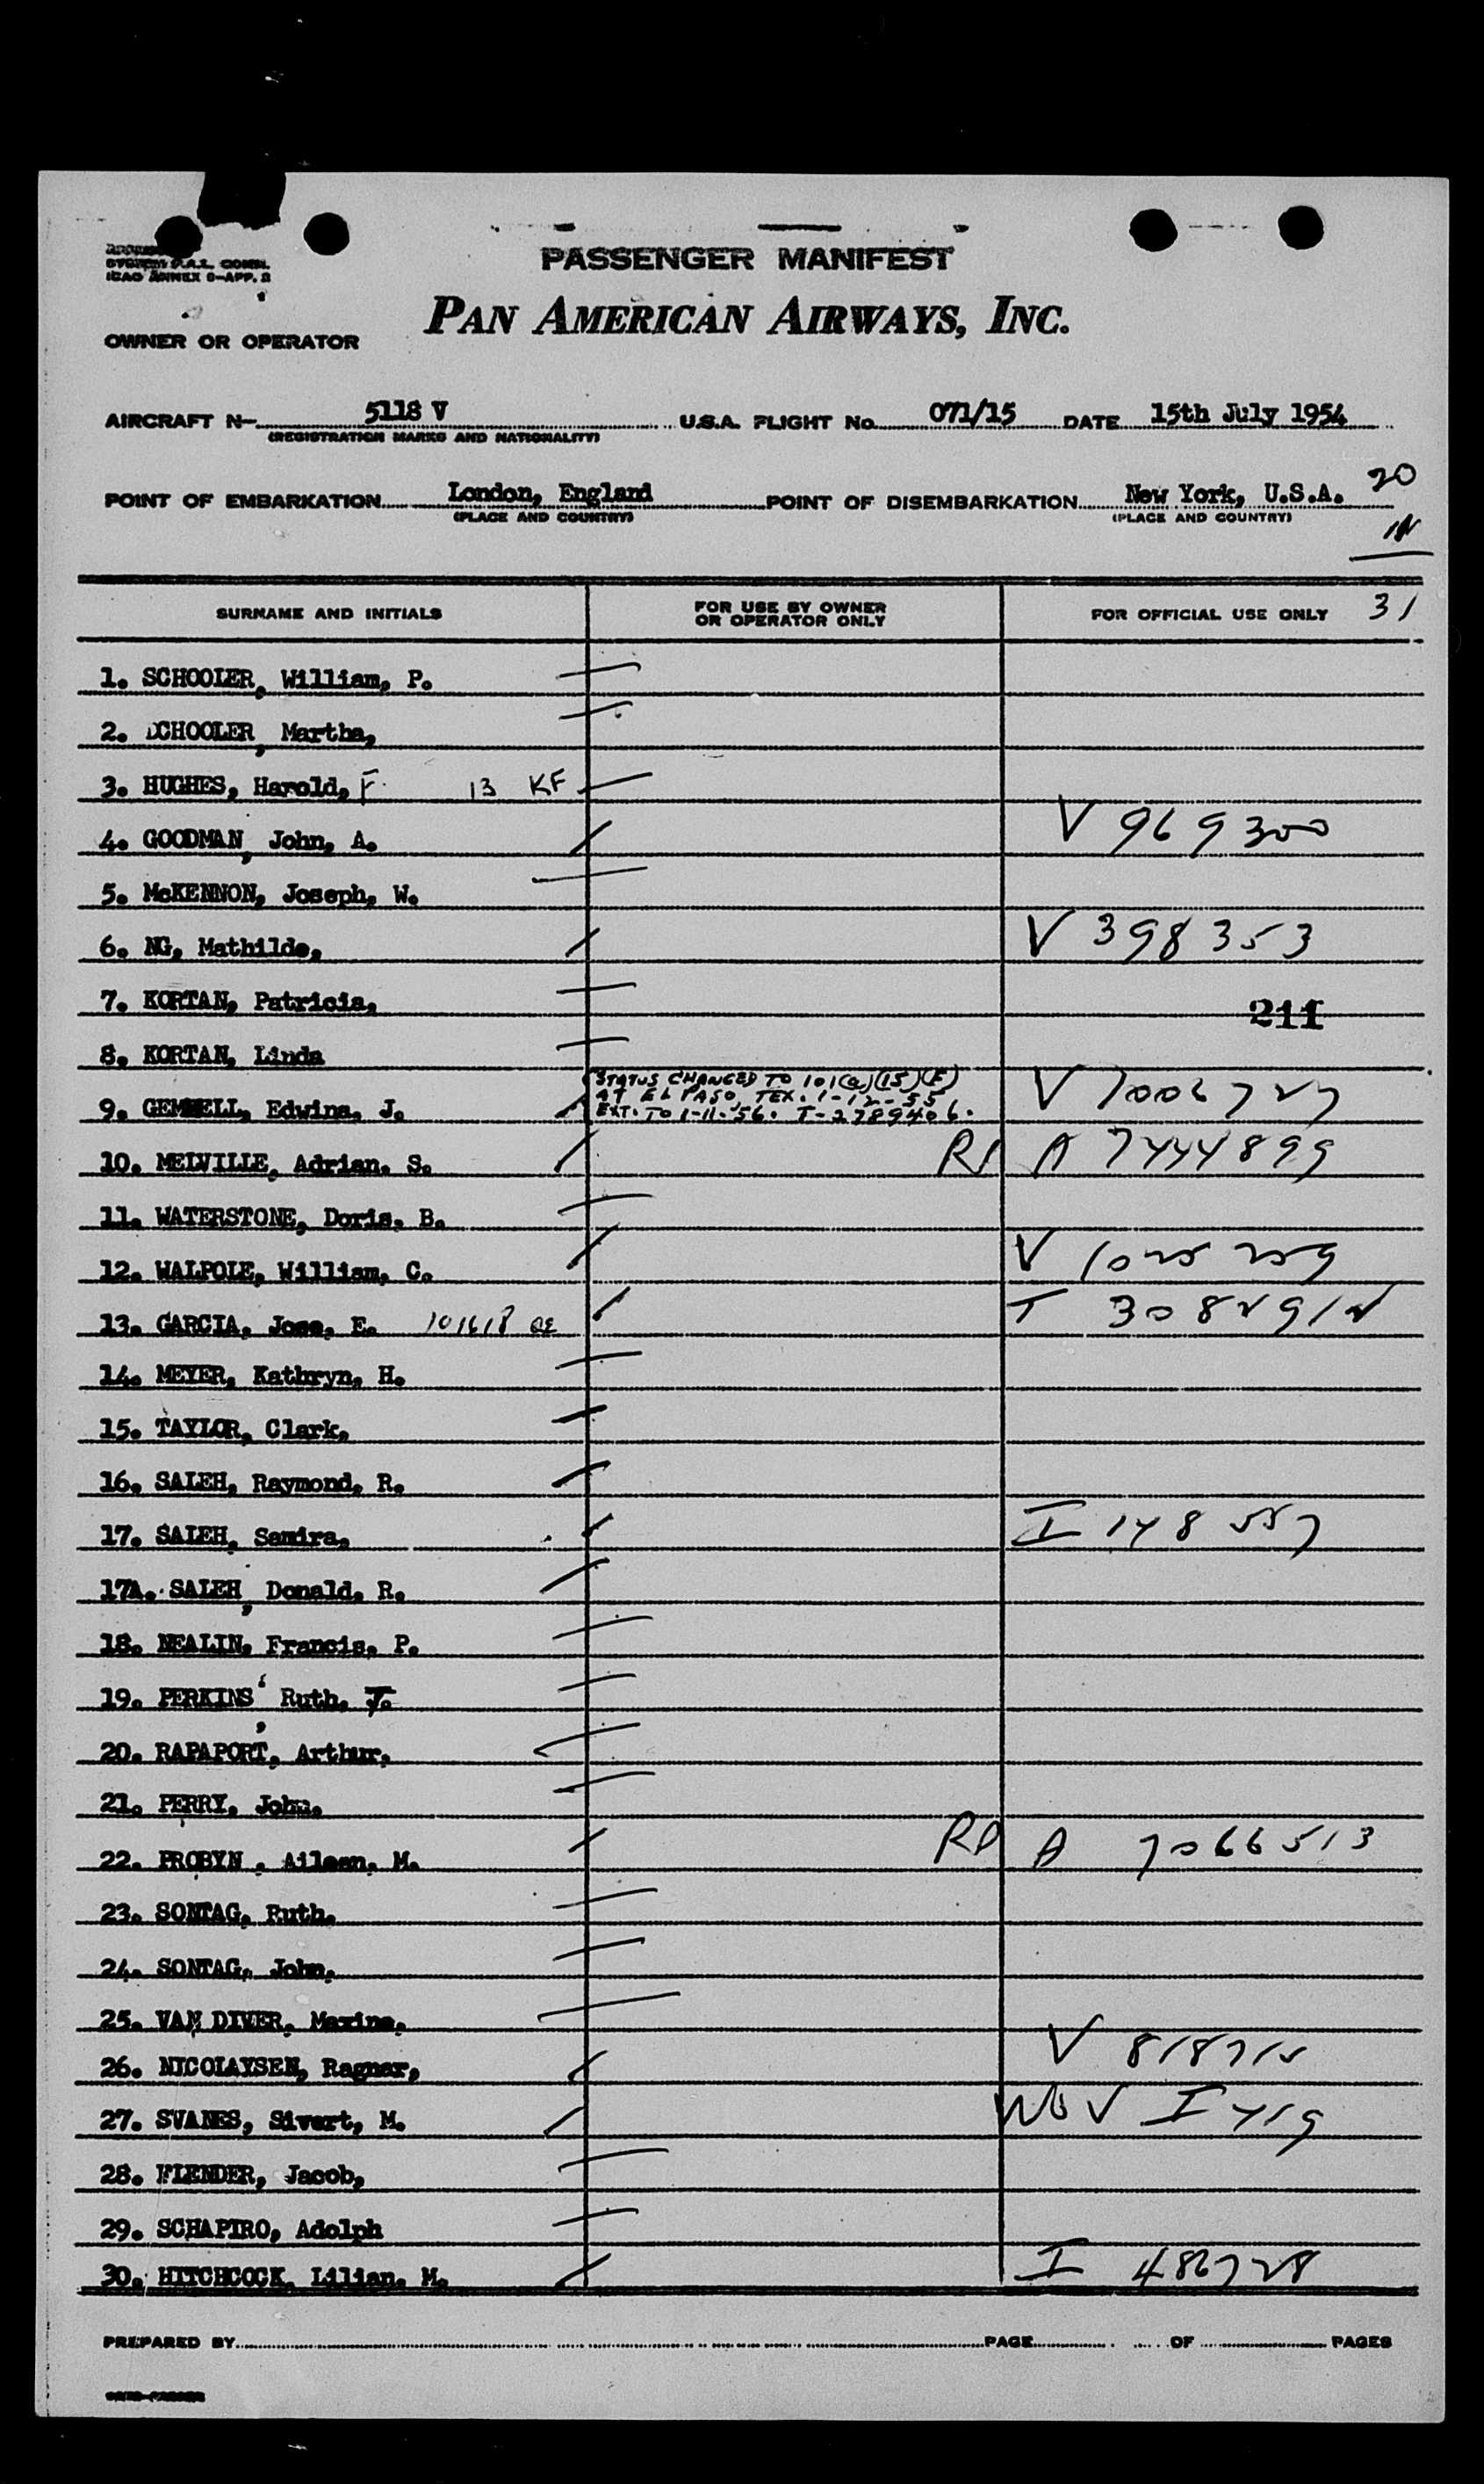 PASSENGER MANIFEST
I.A.T. COMM.
ICAO ANNEX 9—APP. 2
PAN AMERICAN AIRWAYS, INC.
OWNER OR OPERATOR
AIRCRAFT N— 5118 V U.S.A. FLIGHT No. 071/15 DATE 15th July 1954
(REGISTRATION MARKS AND NATIONALITY)
POINT OF EMBARKATION London, England POINT OF DISEMBARKATION New York, U.S.A. 20
(PLACE AND COUNTRY) (PLACE AND COUNTRY)
SURNAME AND INITIALS FOR USE BY OWNER OR OPERATOR ONLY FOR OFFICIAL USE ONLY 31
1. SCHOOLER, William, P.
2. SCHOOLER, Martha,
3. HUGHES, Harold, F. 13 KF
4. GOODMAN, John, A. V 969300
5. McKENNON, Joseph, W.
6. NG, Mathilde, V 398353
7. KORTAN, Patricia,
211
8. KORTAN, Linda
STATUS CHANGED TO 101(a)(15)(F)
AT EL PASO, TEX. 1-12-55
EXT. TO 1-11-56. T-2789406.
9. GEMMELL, Edwina, J. V 1006727
10. MELVILLE, Adrian. S. A 7444899
11. WATERSTONE, Doris. B.
12. WALPOLE, William, C. V 1025259
13. GARCIA, Jose, E. 101618 T 3082912
14. MEYER, Kathryn, H.
15. TAYLOR, Clark,
16. SALEH, Raymond, R.
17. SALEH, Samira, I 148557
17A. SALEH, Donald. R.
18. NEALIN, Francis, P.
19. PERKINS, Ruth. J.
20. RAPAPORT, Arthur.
21. PERRY, John.
22. PROBYN, Aileen, M. RP A 7066513
23. SONTAG, Ruth.
24. SONTAG, John.
25. VAN DIVER, Maxine.
26. NICOLAYSEN, Ragnar, V 818715
27. SVANES, Sivert, M. I 419
28. FLENDER, Jacob,
29. SCHAPIRO, Adolph
30. HITCHCOCK, Lilian. M. I 486728
PREPARED BY PAGE OF PAGES